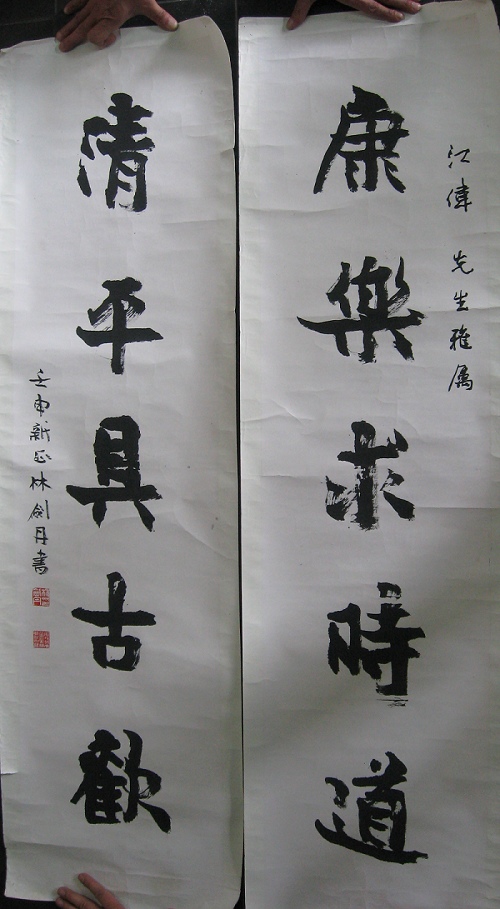 江偉 先生雅属
康樂求時道
清平具古歡
壬申新正林劍丹書